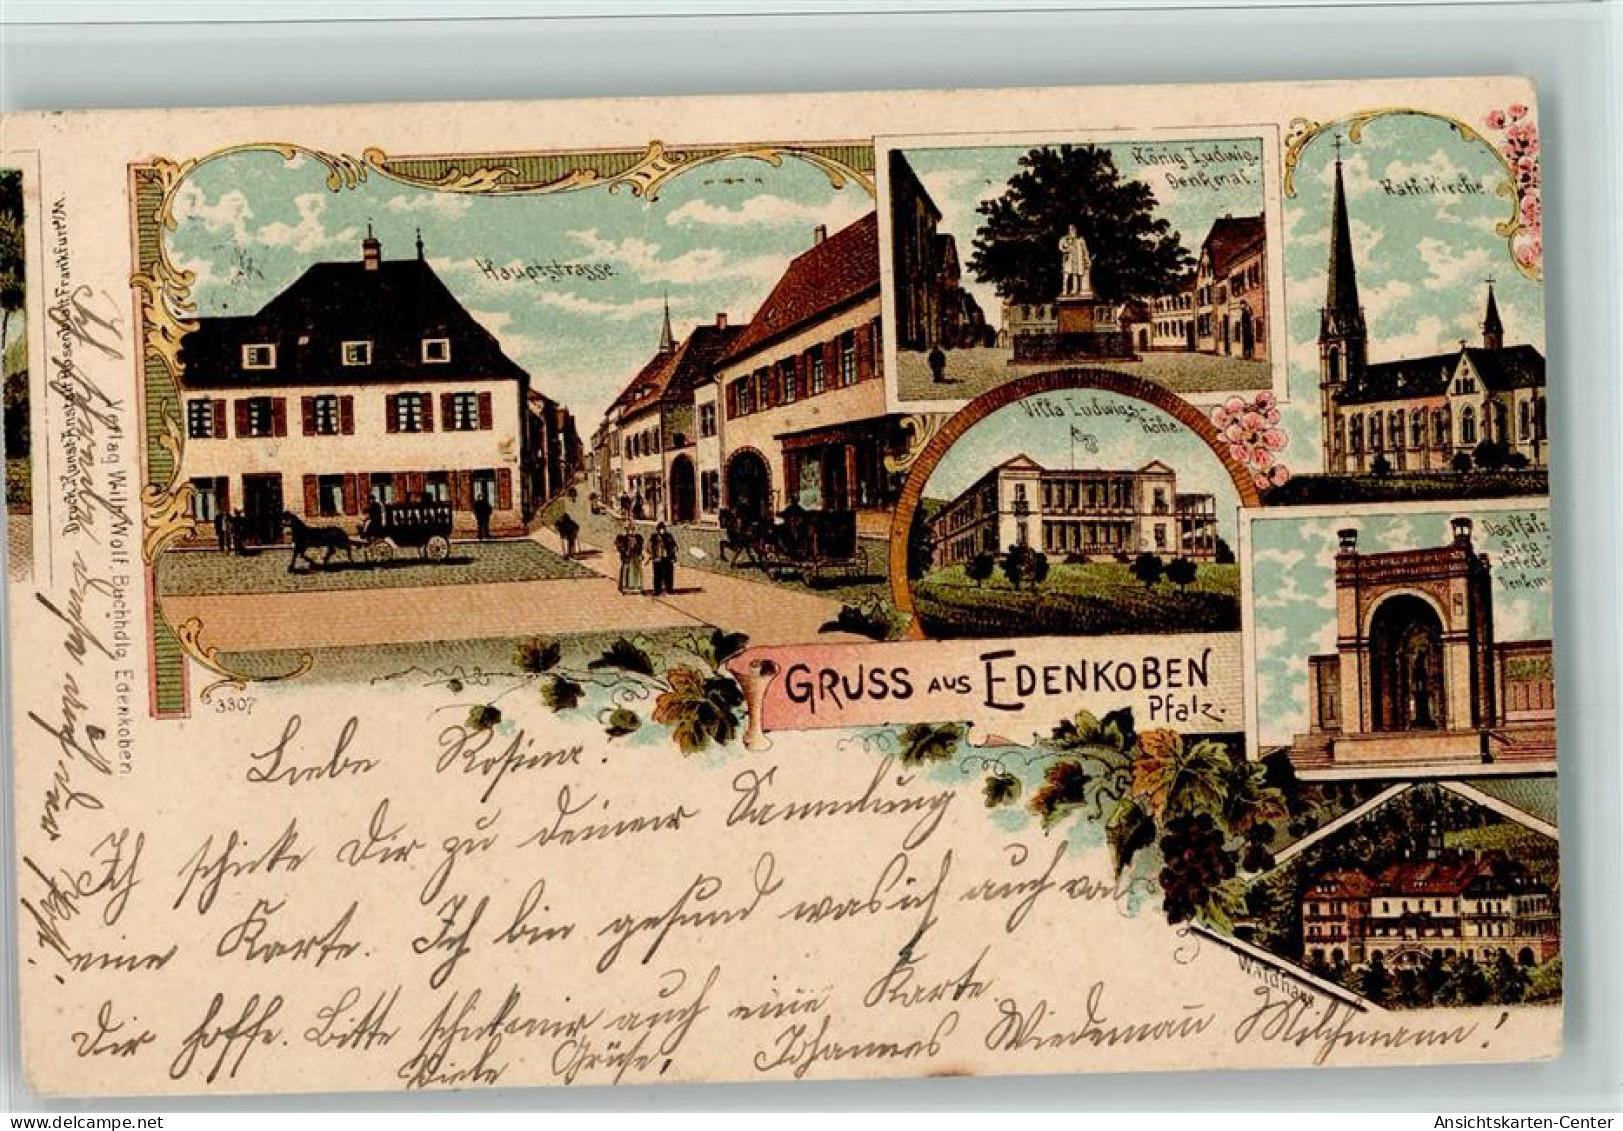 Hauptstrasse.
König Ludwig-
Denkmal.
Kath. Kirche.
Villa Ludwigs-
höhe.
Das Pfälz.
Sieg
friede
Denkm
GRUSS AUS EDENKOBEN
Pfalz.
Waldhaus
3307
Druck Kunst-Anstalt Rosenblatt Frankfurt a/M.
Verlag Willy Wolf, Buchhdlg. Edenkoben.
Liebe Rosina!
Ich schicke Dir zu deiner Sammlung
eine Karte. Ich bin gesund was ich auch von
Dir hoffe. Bitte schicke mir auch eine Karte.
Viele Grüße, Johannes Wiedemann Milchmann!
Ich
Ansichtskarten-Center